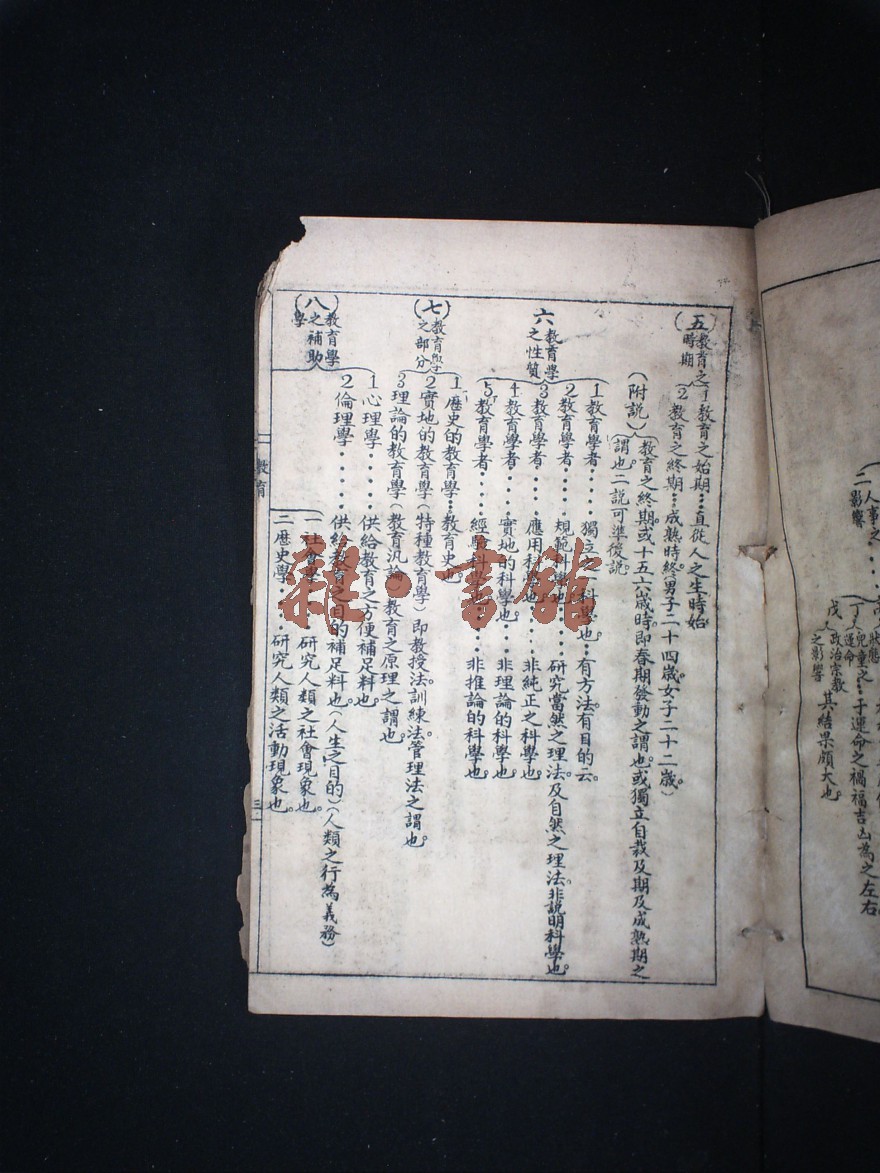 人事之
二影響
狀態
丁人兒童之…子運命之禍福吉凶為之左右
運命
戊人政治宗教
之影響
其結果頗大也
(五)教育之時期
1教育之始期…直從人之生時始
2教育之終期…成熟時終(男子二十四歲。女子二十二歲。)
(附說)教育之終期。或十五六歲時即春期發動之謂也。或獨立自裁及期及成熟期之
謂也。二說可準後說
六教育學之性質
1教育學者....獨立之一科學也..有方法。有目的云。
2教育學者....規範科學也....研究當然之理法。及自然之理法。非說明科學也。
3教育學者....應用科學也....非純正之科學也。
4教育學者....實地的科學也...非理論的科學也。
5教育學者....經驗科學也....非推論的科學也。
(七)教育學之部分
1歷史的教育學…教育史也。
2實地的教育學(特種教育學)即教授法。訓練法。管理法之謂也。
3理論的教育學(教育汎論)教育之原理之謂也。
(八)教育學之補助學
1心理學....供給教育之方便補足料也。
2倫理學....供給教育之目的補足料也。(人生之目的)(人類之行為義務)
一社會學...研究人類之社會現象也。
二歷史學...研究人類之活動現象也。
教育
三
雜·書館